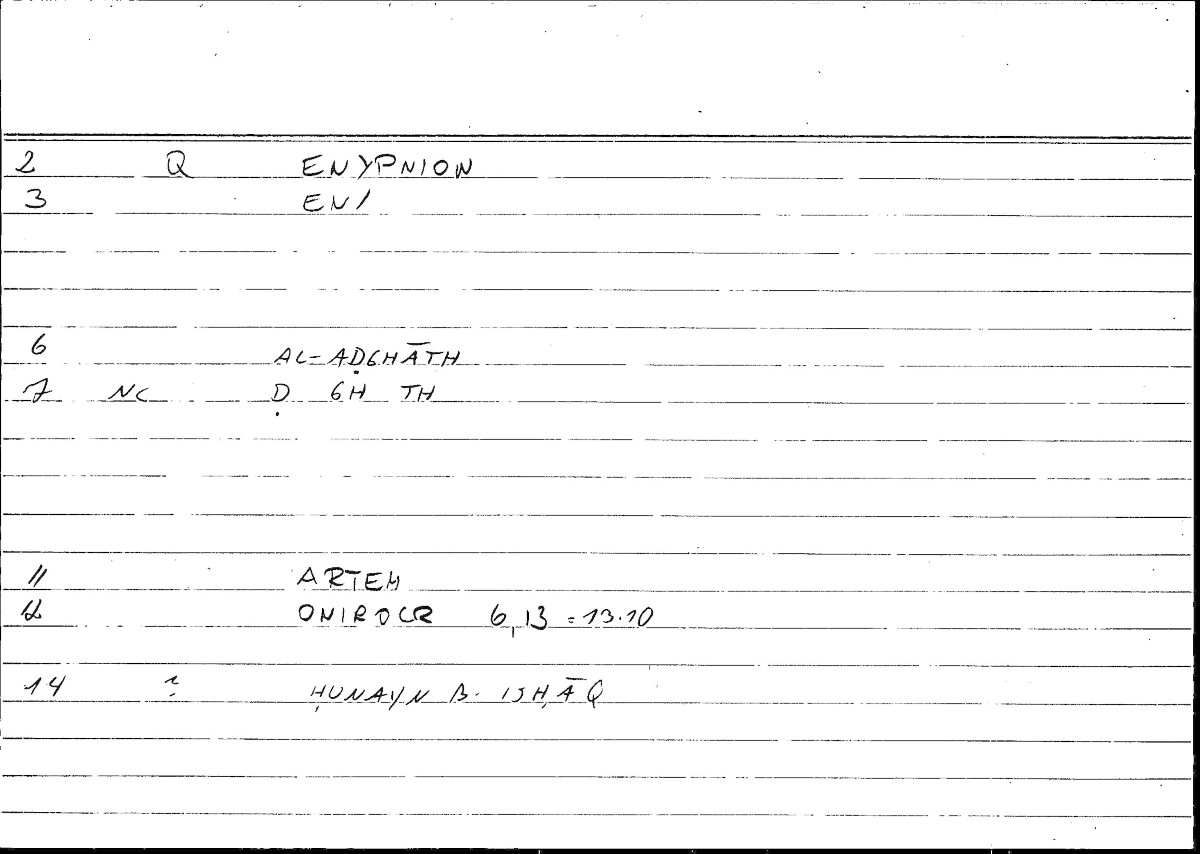 2 Q ENYPNION
3 EN/
6 AL-ADGHĀTH
7 NC Ḍ GH TH
11 ARTEM
12 ONIROCR 6,13 = 13.10
14 ? ḤUNAYN B. ISḤĀQ